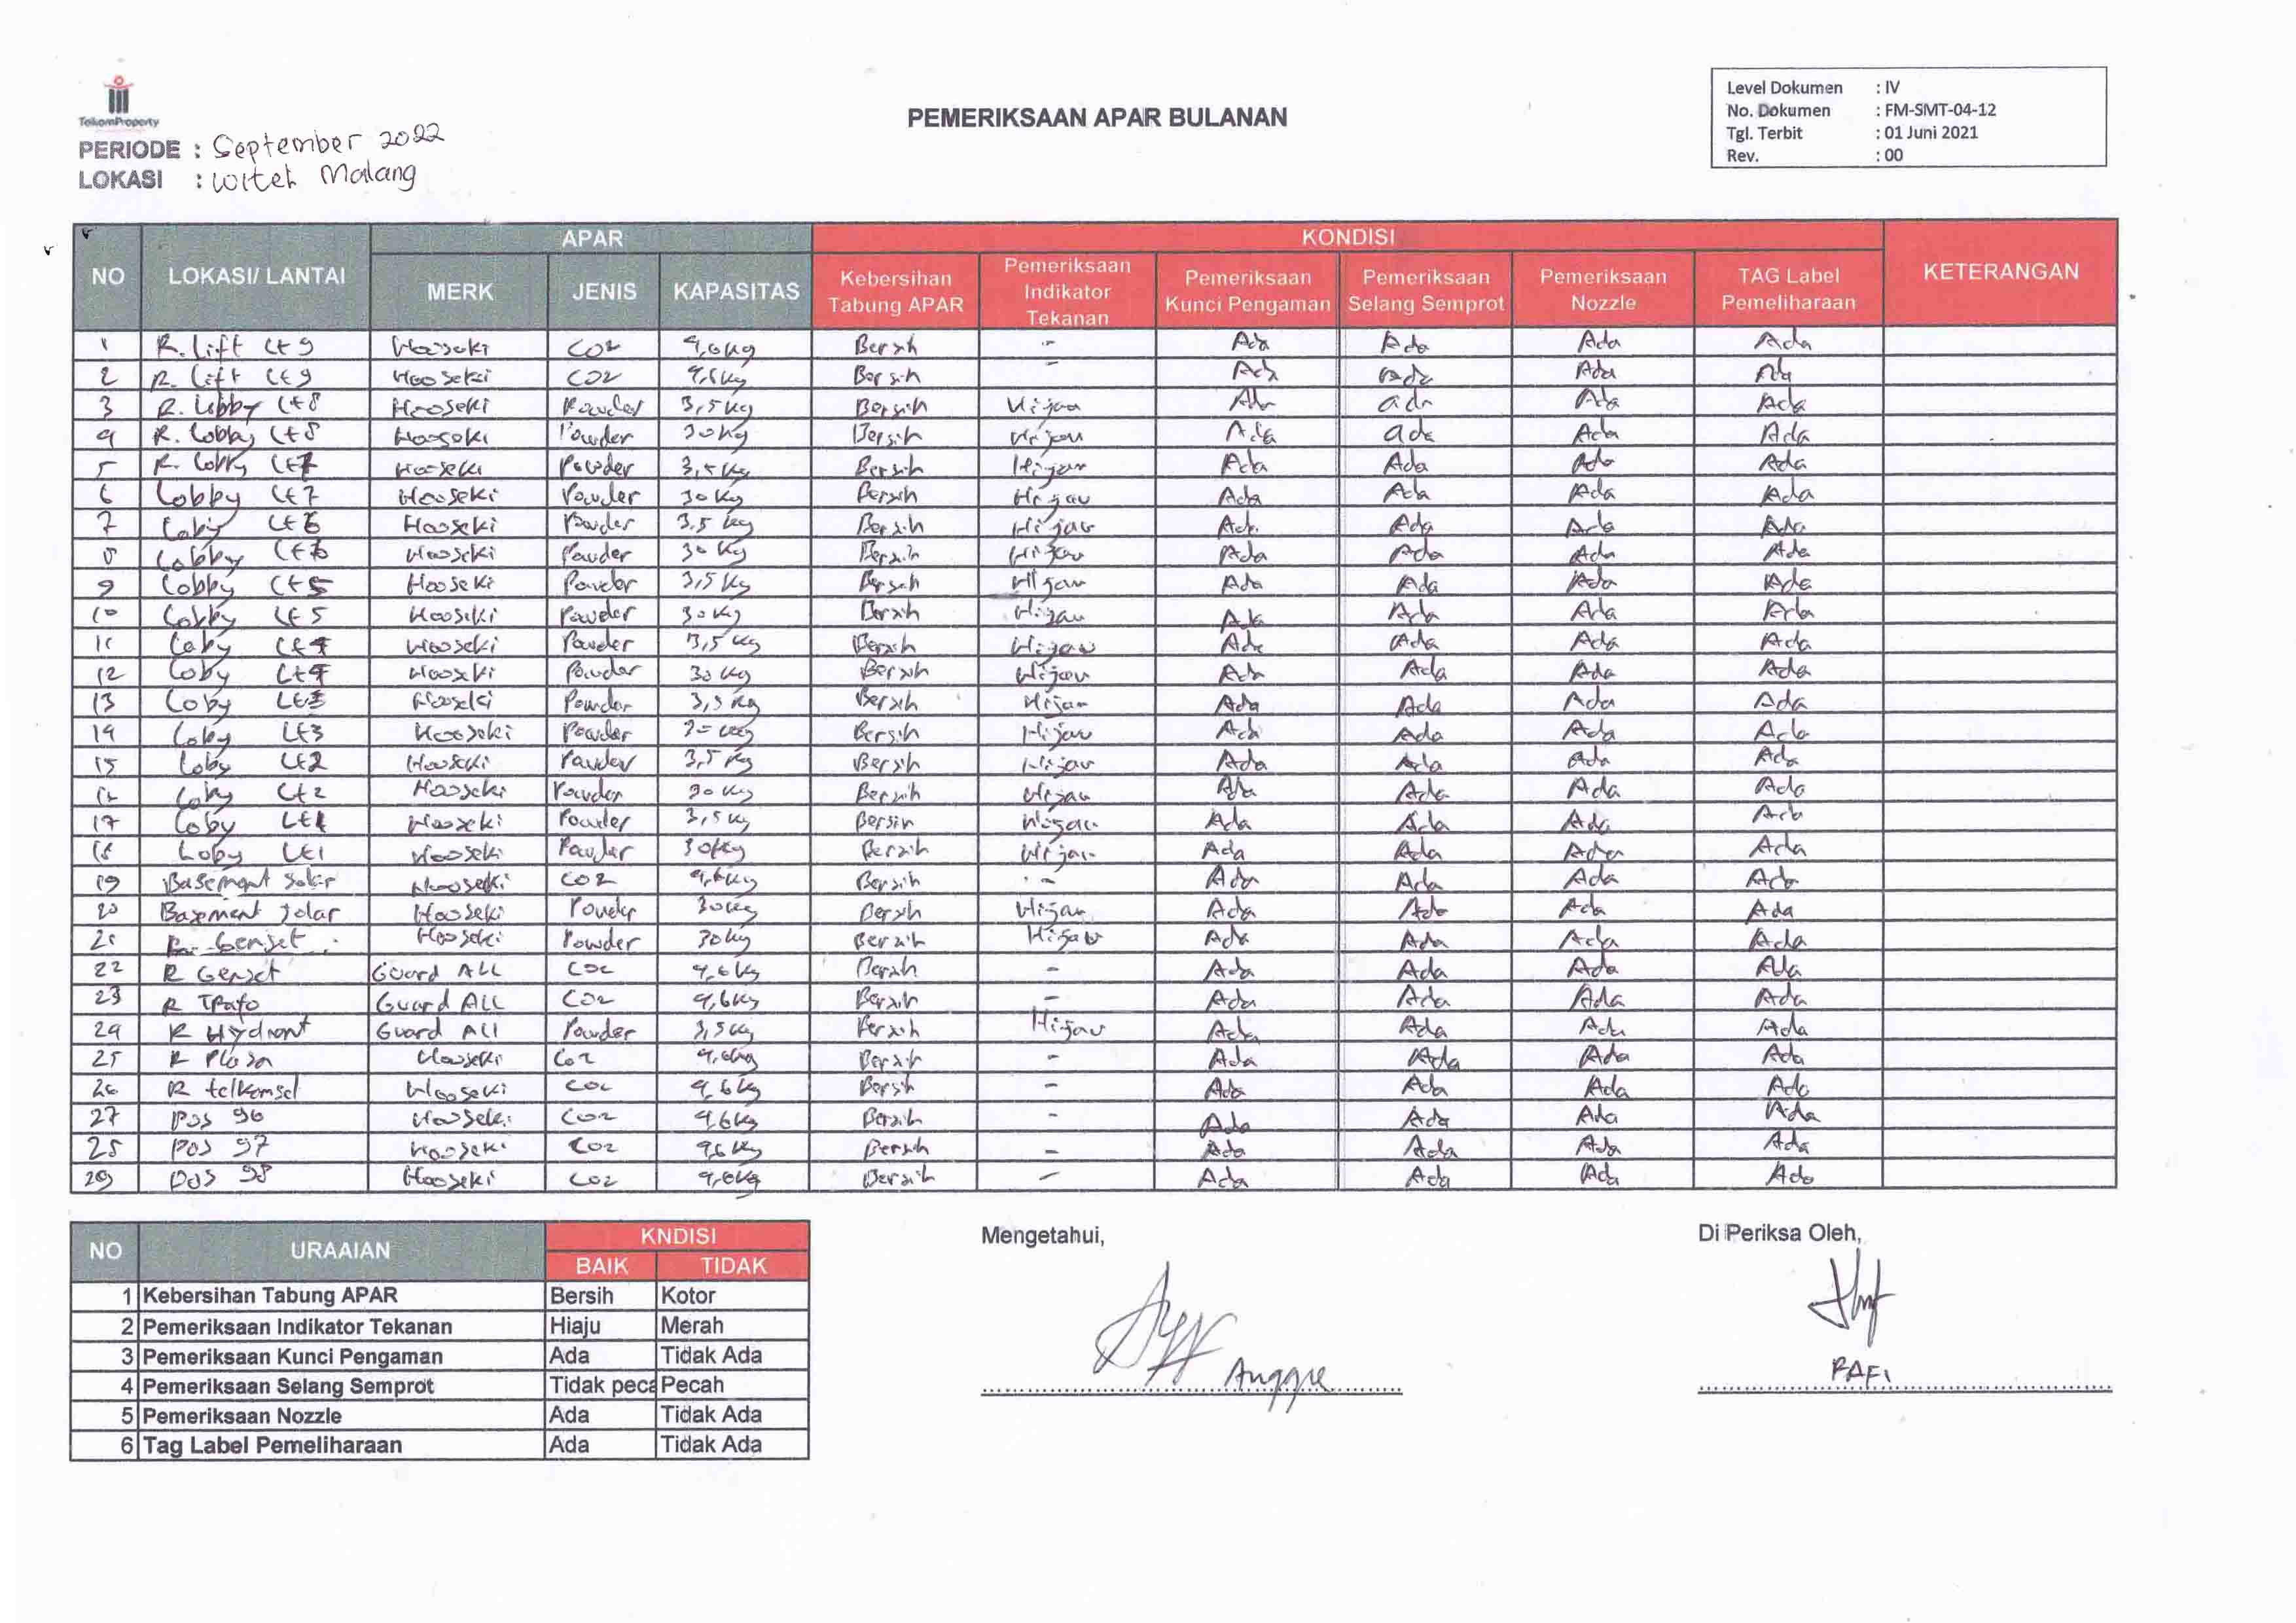 TelkomProperty
PERIODE : September 2022
LOKASI : Witel Malang
PEMERIKSAAN APAR BULANAN
Level Dokumen : IV
No. Dokumen : FM-SMT-04-12
Tgl. Terbit : 01 Juni 2021
Rev. : 00
NO LOKASI/ LANTAI APAR KONDISI KETERANGAN
MERK JENIS KAPASITAS Kebersihan Tabung APAR Pemeriksaan Indikator Tekanan Pemeriksaan Kunci Pengaman Pemeriksaan Selang Semprot Pemeriksaan Nozzle TAG Label Pemeliharaan
1 R. Lift Lt 9 Hooseki CO2 4,6 Kg Bersih - Ada Ada Ada Ada
2 R. Lift Lt 9 Hooseki CO2 4,6 Kg Bersih - Ada Ada Ada Ada
3 R. Lobby Lt 8 Hooseki Powder 3,5 Kg Bersih Hijau Ada ada Ada Ada
4 R. Lobby Lt 8 Hooseki Powder 30 Kg Bersih Hijau Ada ada Ada Ada
5 R. Lobby Lt 7 Hooseki Powder 3,5 Kg Bersih Hijau Ada Ada Ada Ada
6 Lobby Lt 7 Hooseki Powder 30 Kg Bersih Hijau Ada Ada Ada Ada
7 Loby Lt 6 Hooseki Powder 3,5 Kg Bersih Hijau Ada Ada Ada Ada
8 Lobby Lt 6 Hooseki Powder 30 Kg Bersih Hijau Ada Ada Ada Ada
9 Lobby Lt 5 Hooseki Powder 3,5 Kg Bersih Hijau Ada Ada Ada Ada
10 Lobby Lt 5 Hooseki Powder 30 Kg Bersih Hijau Ada Ada Ada Ada
11 Loby Lt 4 Hooseki Powder 3,5 Kg Bersih Hijau Ada Ada Ada Ada
12 Loby Lt 4 Hooseki Powder 30 Kg Bersih Hijau Ada Ada Ada Ada
13 Loby Lt 3 Hooseki Powder 3,5 Kg Bersih Hijau Ada Ada Ada Ada
14 Loby Lt 3 Hooseki Powder 30 Kg Bersih Hijau Ada Ada Ada Ada
15 Loby Lt 2 Hooseki Powder 3,5 Kg Bersih Hijau Ada Ada Ada Ada
16 Loby Lt 2 Hooseki Powder 30 Kg Bersih Hijau Ada Ada Ada Ada
17 Loby Lt 1 Hooseki Powder 3,5 Kg Bersih Hijau Ada Ada Ada Ada
18 Loby Lt 1 Hooseki Powder 30 Kg Bersih Hijau Ada Ada Ada Ada
19 Basement Solar Hooseki CO2 4,6 Kg Bersih - Ada Ada Ada Ada
20 Basement Solar Hooseki Powder 30 Kg Bersih Hijau Ada Ada Ada Ada
21 R. Genset Hooseki Powder 30 Kg Bersih Hijau Ada Ada Ada Ada
22 R Genset Guard ALL CO2 4,6 Kg Bersih - Ada Ada Ada Ada
23 R Trafo Guard ALL CO2 4,6 Kg Bersih - Ada Ada Ada Ada
24 R Hydrant Guard All Powder 3,5 Kg Bersih Hijau Ada Ada Ada Ada
25 R Plasa Hooseki CO2 4,6 Kg Bersih - Ada Ada Ada Ada
26 R telkomsel Hooseki CO2 4,6 Kg Bersih - Ada Ada Ada Ada
27 Pos 96 Hooseki CO2 4,6 Kg Bersih - Ada Ada Ada Ada
28 Pos 97 Hooseki CO2 4,6 Kg Bersih - Ada Ada Ada Ada
29 Pos 98 Hooseki CO2 4,6 Kg Bersih - Ada Ada Ada Ada
NO URAAIAN KNDISI
BAIK TIDAK
1 Kebersihan Tabung APAR Bersih Kotor
2 Pemeriksaan Indikator Tekanan Hiaju Merah
3 Pemeriksaan Kunci Pengaman Ada Tidak Ada
4 Pemeriksaan Selang Semprot Tidak peca Pecah
5 Pemeriksaan Nozzle Ada Tidak Ada
6 Tag Label Pemeliharaan Ada Tidak Ada
Mengetahui,
Anggie
Di Periksa Oleh,
RAFI